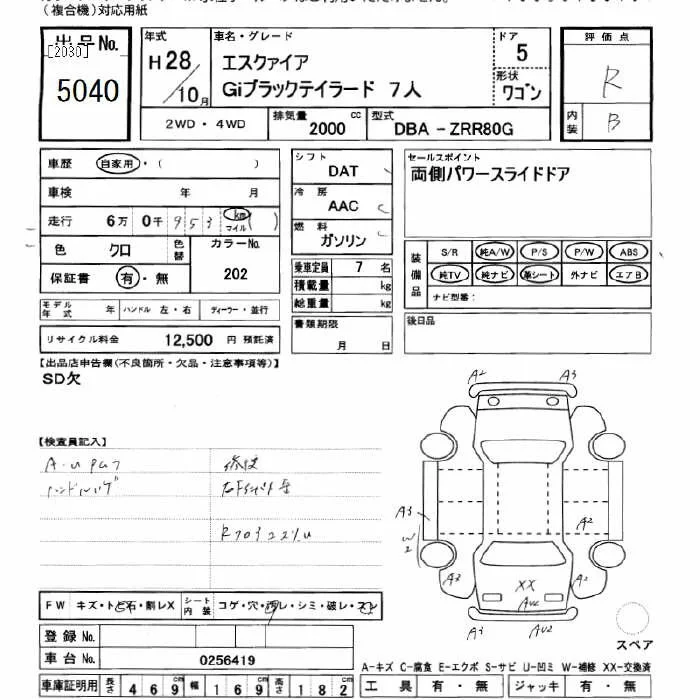 (複合機)対応用紙
出品No.
[2030]
5040
年式
H28/10月
車名・グレード
エスクァイア
Giブラックテイラード 7人
ドア
5
形状
ワゴン
評価点
R
内装
B
2WD・4WD
排気量
2000 cc
型式
DBA-ZRR80G
車歴
自家用・( )
車検 年 月
走行 6万 0千 953 km マイル ( )
色 クロ
色替
カラーNo.
202
保証書 有・無
モデル年式 年
ハンドル 左・右
ディーラー・並行
リサイクル料金 12,500 円 預託済
シフト
DAT
冷房
AAC
燃料
ガソリン
乗車定員 7 名
積載量 kg
総重量 kg
書類期限
月 日
セールスポイント
両側パワースライドドア
装備品
S/R 純A/W P/S P/W ABS
純TV 純ナビ 革シート 外ナビ エアB
ナビ型番:
後日品
【出品店申告欄(不良箇所・欠品・注意事項等)】
SD欠
【検査員記入】
A2 A3
A3
W2
A2
A3
A2
XX
AU2
A3 AU2
スペア
FW キズ・トビ石・割レX
シート内装 コゲ・穴・汚レ・シミ・破レ・スレ
登録No.
車台No. 0256419
車庫証明用 長さ 469cm 幅 169cm 高さ 182cm
A-キズ C-腐食 E-エクボ S-サビ U-凹ミ W-補修 XX-交換済
工具 有・無 ジャッキ 有・無